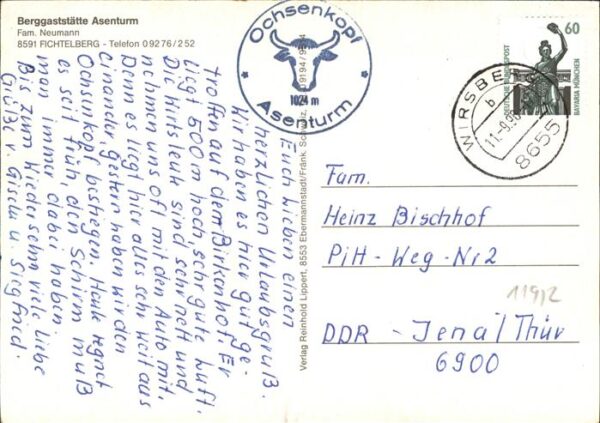 Berggaststätte Asenturm
Fam. Neumann
8591 FICHTELBERG - Telefon 09276/252
Ochsenkopf
1024 m
Asenturm
60
DEUTSCHE BUNDESPOST
BAVARIA MÜNCHEN
WIRSBE
b
11.-9.90
8655
Euch lieben einen
herzlichen Urlaubsgruß.
Wir haben es hier gut ge-
troffen auf dem Birkenhof. Er
liegt 500 m hoch, sehr gute Luft.
Die Wirtsleute sind sehr nett und
nehmen uns oft mit den Auto mit.
Denn es liegt hier alles sehr weit aus
einander, gestern haben wir den
Ochsenkopf bestiegen. Heute regnet
es seit früh, den Schirm muß
man immer dabei haben.
Bis zum Wiedersehn viele liebe
Grüße v. Gisela u. Siegfried.
Verlag Reinhold Lippert, 8553 Ebermannstadt/Fränk. Schweiz,
Fam.
Heinz Bischhof
Pitt-Weg-Nr 2
119/2
DDR - Jena/Thür
6900